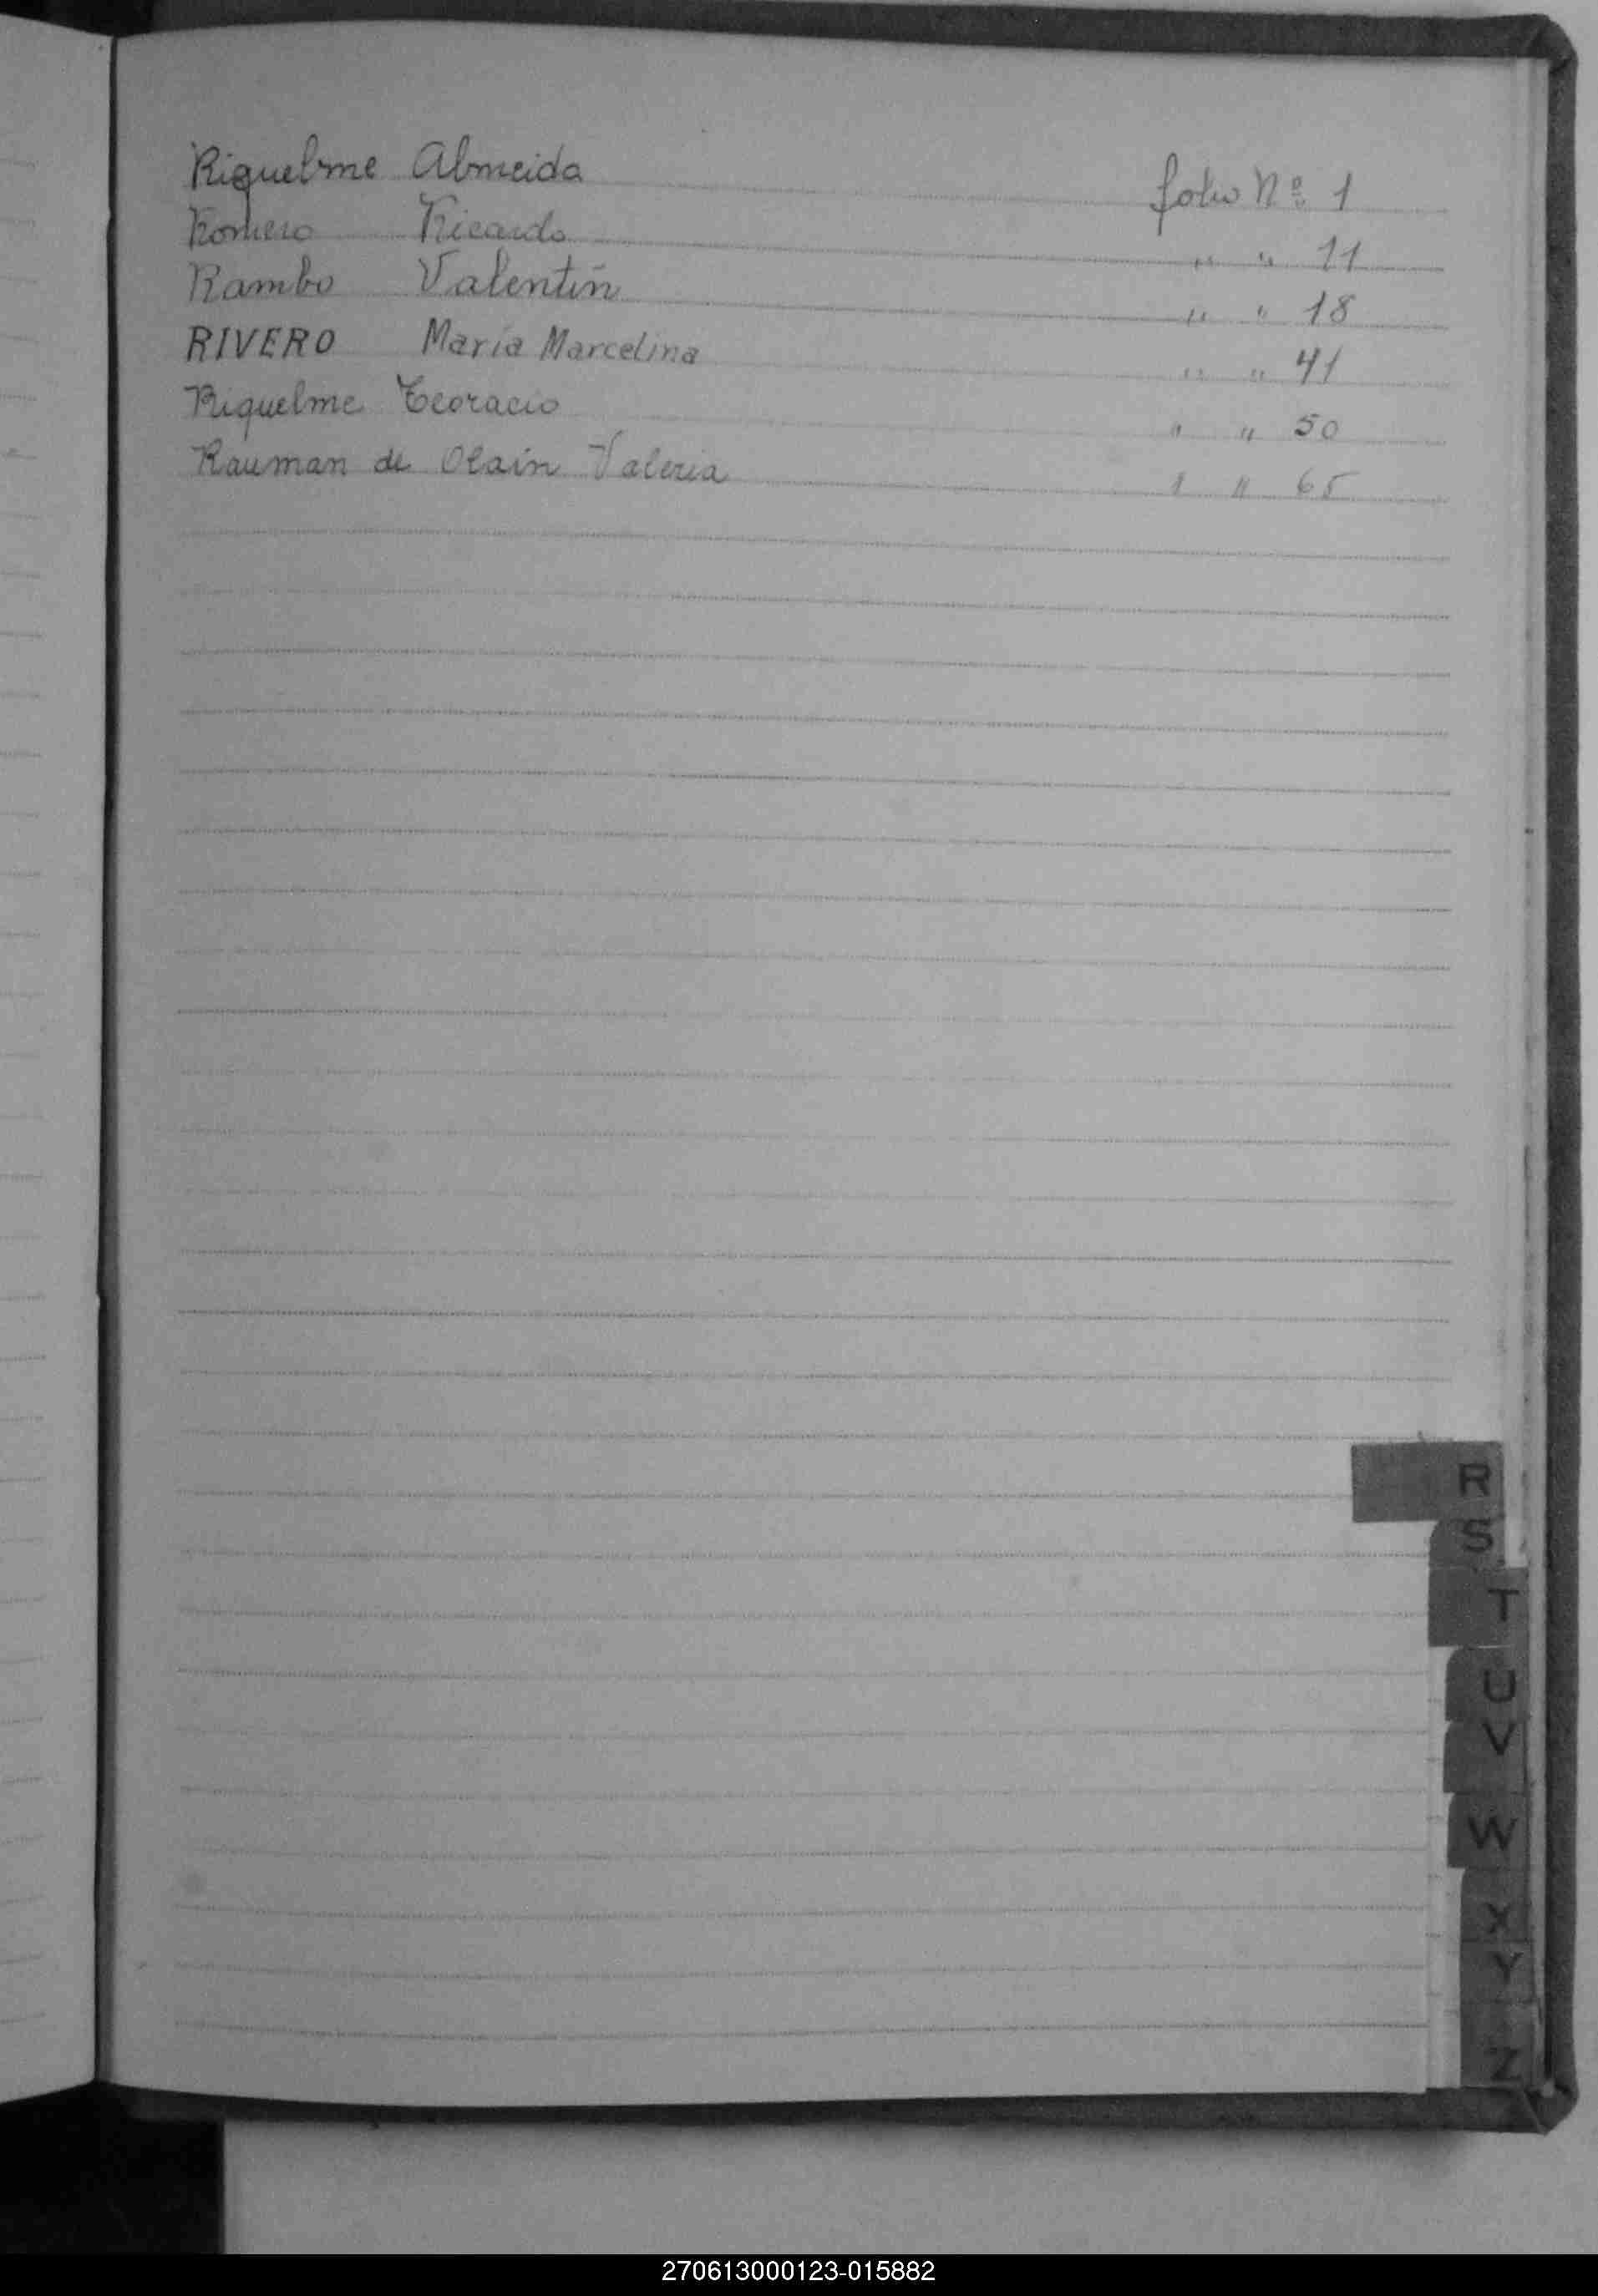 Riquelme Almeida folio Nº 1
Romero Ricardo " " 11
Rambo Valentín " " 18
RIVERO María Marcelina " " 41
Riquelme Teoracio " " 50
Rauman de Olain Valeria " " 65
R
S
T
U
V
W
X
Y
Z
270613000123-015882